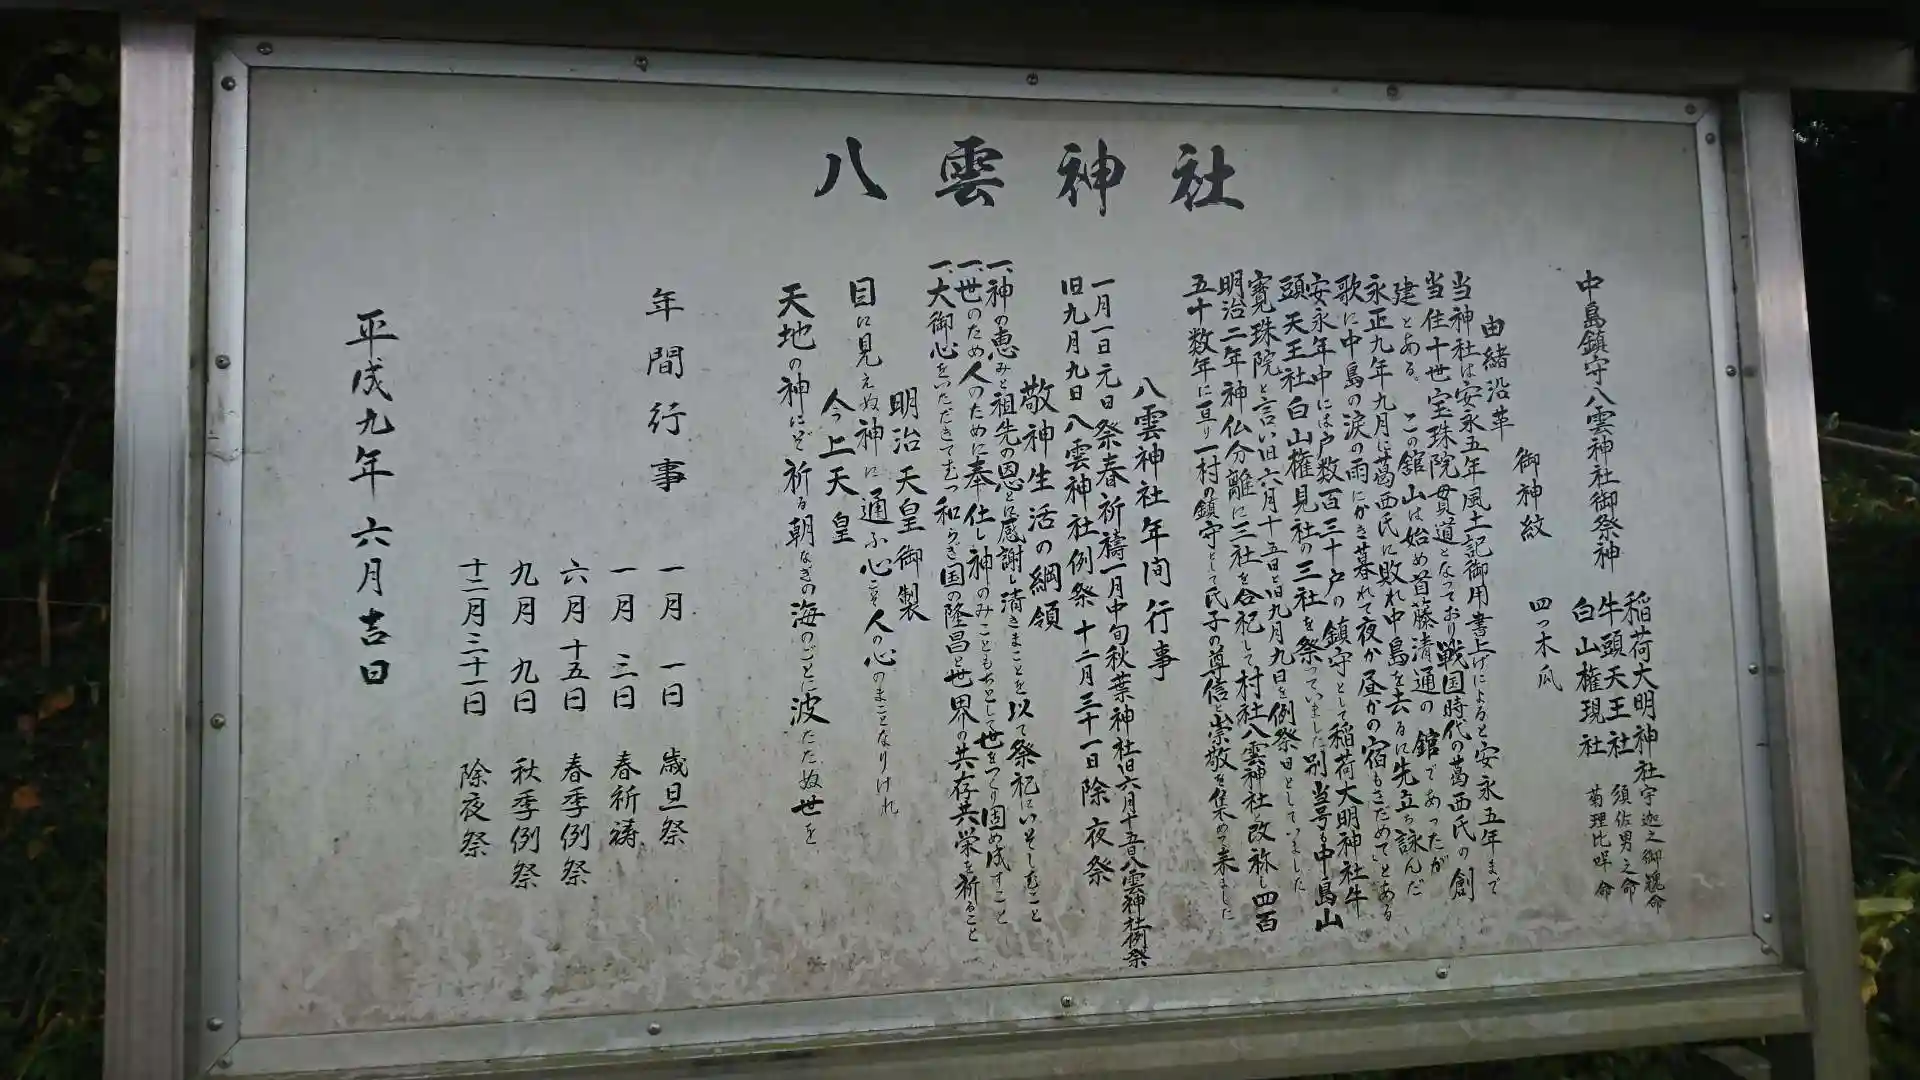 八雲神社
中島鎮守八雲神社御祭神
稲荷大明神社 宇迦之御魂命
牛頭天王社 須佐男之命
白山権現社 菊理比咩命
御神紋 四ツ木瓜
由緒沿革
当神社は安永五年風土記御用書上げによると安永五年まで
当住十世宝珠院貫道となっており戦国時代の葛西氏の創
建とある。この舘山は始め首藤清通の舘であったが
永正九年九月に葛西氏に敗れ中島を去るに先立ち詠んだ
歌に中島の涙の雨にかき暮れて夜か昼かの宿もさだめでとある
安永年中には戸数百三十戸の鎮守として稲荷大明神社牛
頭天王社白山権見社の三社を祭っていました別当号も中島山
寳珠院と言い旧六月十五日と旧九月九日を例祭日としていました
明治二年神仏分離に三社を合祀して村社八雲神社と改称し四百
五十数年に亘り一村の鎮守として氏子の尊信と崇敬を集めて来ました
八雲神社年間行事
一月一日元日祭春祈祷一月中旬秋葉神社旧六月十五日八雲神社例祭
旧九月九日八雲神社例祭十二月三十一日除夜祭
敬神生活の綱領
一、神の恵みと祖先の恩とに感謝し清きまことを以て祭祀にいそしむこと
一、世のため人のために奉仕し神のみこともちとして世をつくり固め成すこと
一、大御心をいただきてむつ和らぎ国の隆昌と世界の共存共栄を祈ること
明治天皇御製
目に見えぬ神に通ふ心こそ人の心のまことなりけれ
今上天皇
天地の神にぞ祈る朝なぎの海のごとに波たたぬ世を
年間行事
一月 一日 歳旦祭
一月 三日 春祈祷
六月十五日 春季例祭
九月 九日 秋季例祭
十二月三十一日 除夜祭
平成九年六月吉日